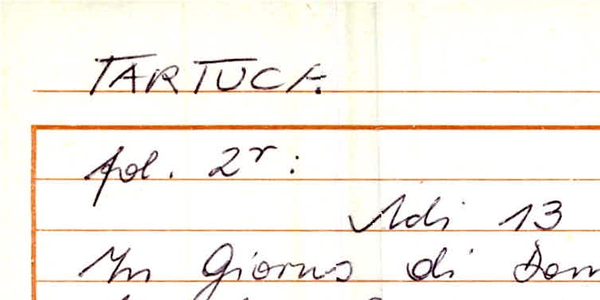 TARTUCA
fol. 2r:
Adi 13
In Giorno di Dom